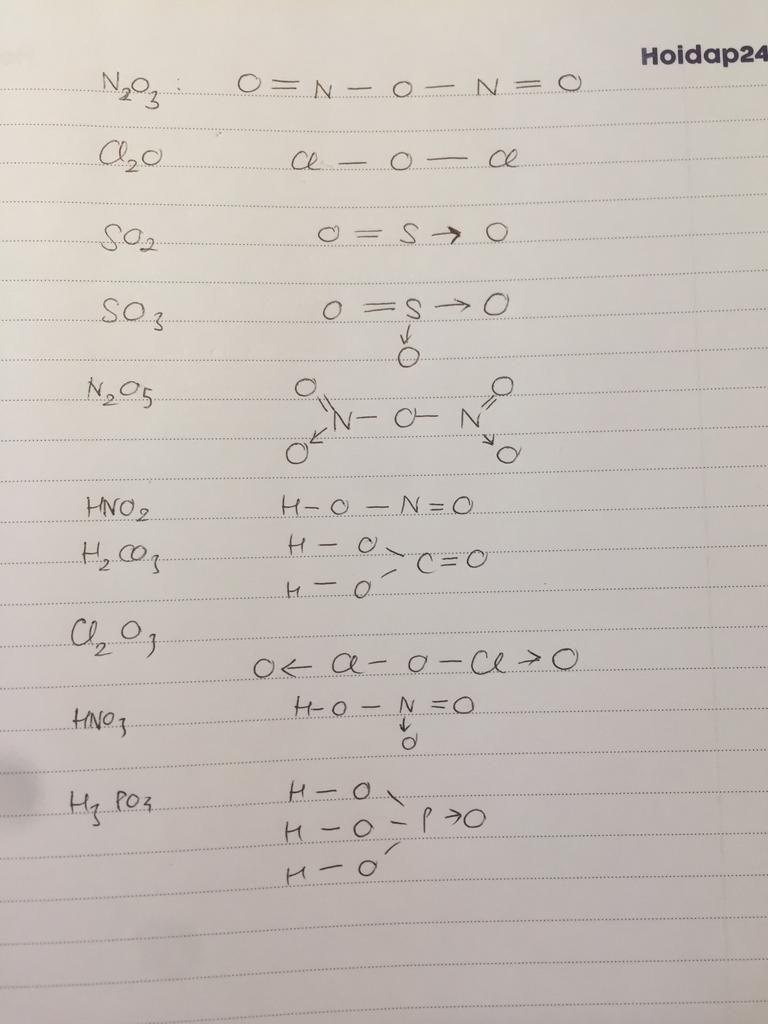 Hoidap24
N₂O₃ : O = N — O — N = O
Cl₂O Cl — O — Cl
SO₂ O = S → O
SO₃ O = S → O
↓
O
N₂O₅ O O
\\ N — O — N //
O ↙ ↘ O
HNO₂ H — O — N = O
H₂CO₃ H — O \ C = O
H — O /
Cl₂O₃
O ← Cl — O — Cl → O
HNO₃ H — O — N = O
↓
O
H₃PO₄ H — O \
H — O — P → O
H — O /